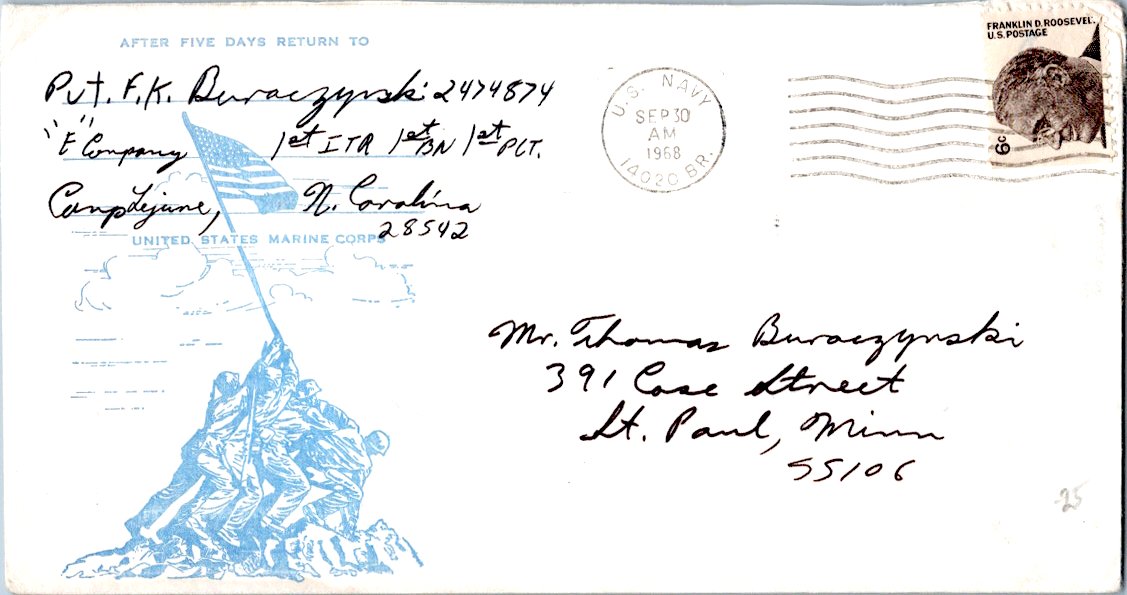 AFTER FIVE DAYS RETURN TO
Pvt. F.K. Buraczynski 2474874
"E" Company 1st ITR 1st BN 1st PLT.
Camp Lejune, N. Carolina
28542
UNITED STATES MARINE CORPS
U.S. NAVY
SEP 30
AM
1968
14020 BR.
FRANKLIN D. ROOSEVELT
U.S. POSTAGE
6c
Mr. Thomas Buraczynski
391 Case Street
St. Paul, Minn
55106
25